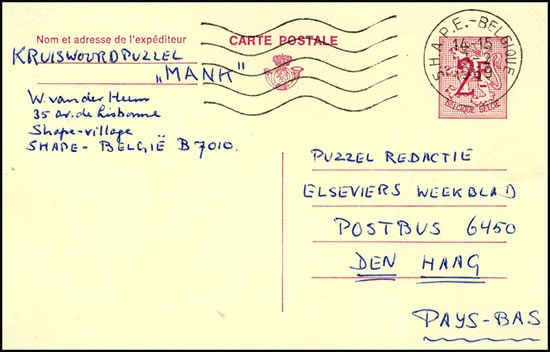 Nom et adresse de l'expéditeur
CARTE POSTALE
KRUISWOORDPUZZEL
"MANK"
W. van der Heum
35 av. de Lisbonne
Shape-village
SHAPE- BELGIË B7010.
S.H.A.P.E.-BELGIQUE
14-15
2F
BELGIQUE BELGIË
PUZZEL REDACTIE
ELSEVIERS WEEKBLAD
POSTBUS 6450
DEN HAAG
PAYS-BAS